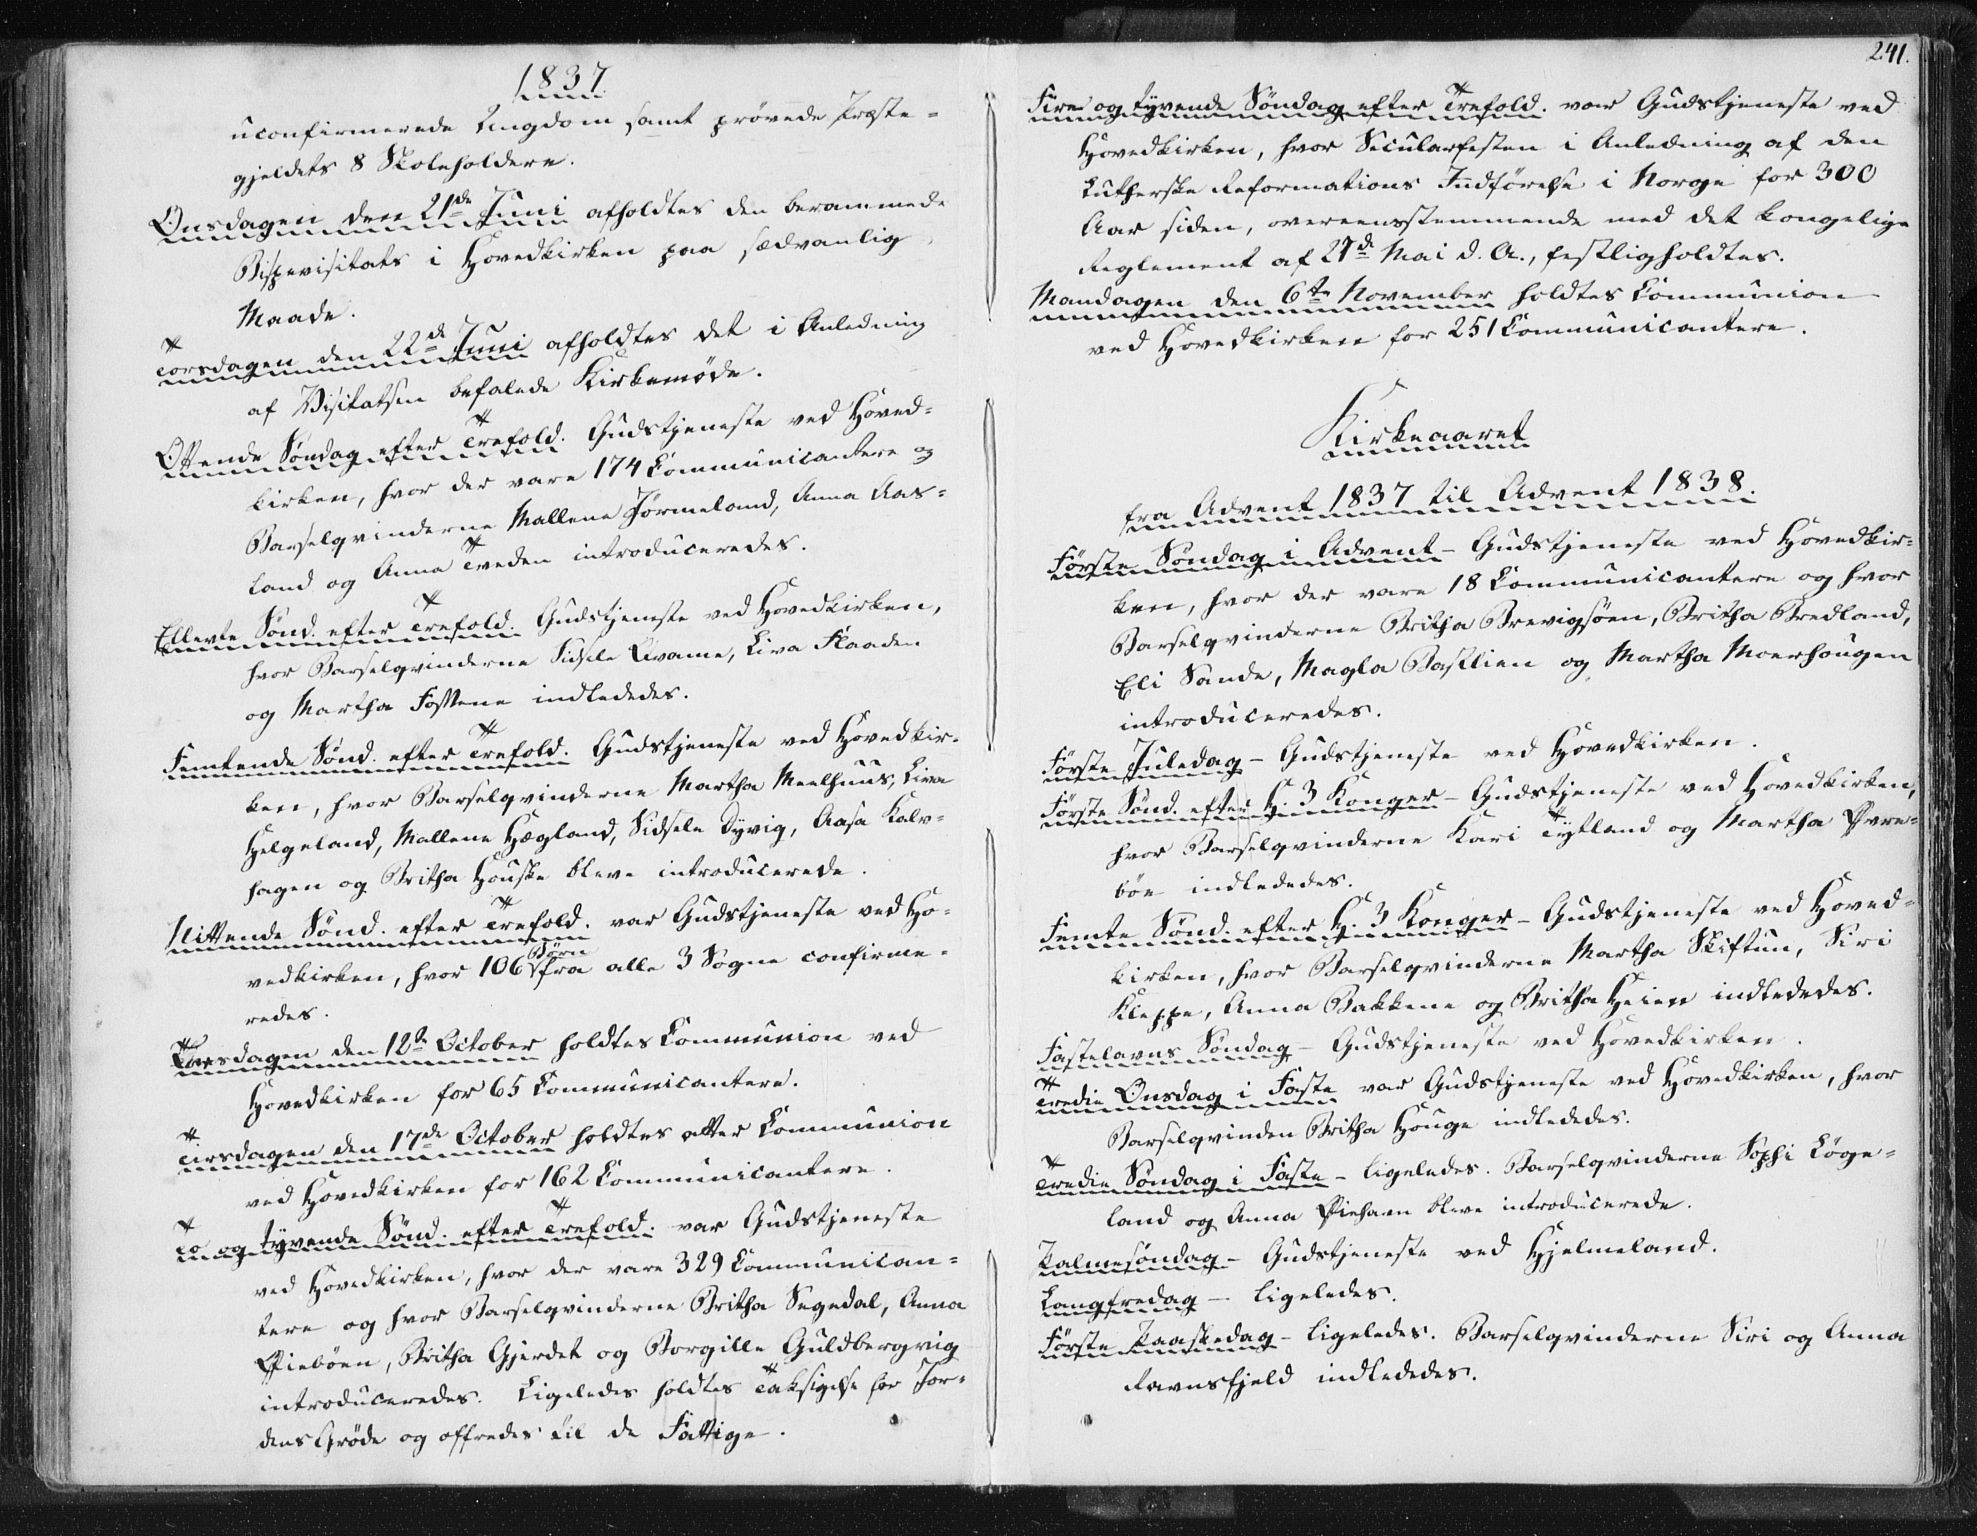 1837
uconfirmerede Ungdom samt prøvede Præste-
gjeldets 8 Skoleholdere.
Onsdagen den 21de Juni afholdtes den berammede
Bispevisitats i Hovedkirken paa sædvanlig
Maade.
Torsdagen den 22de Juni afholdtes det i Anledning
af Visitatsen befalede Kirkemøde.
Ottende Søndag efter Trefold. Gudstjeneste ved Hoved-
kirken, hvor der vare 174 Communicantere og
Barselqvinderne Mallene Jørmeland, Anna Aas-
land og Anna Tveden introduceredes.
Ellevte Sønd. efter Trefold. Gudstjeneste ved Hovedkirken,
hvor Barselqvinderne Sidsele Qvame, Liva Flaaden
og Martha Fossene indlededes.
Femtende Sønd. efter Trefold. Gudstjeneste ved Hovedkir-
ken, hvor Barselqvinderne Martha Meelhuus, Liva
Helgeland, Mallene Hægland, Sidsele Dyvig, Aasa Kalv-
hagen og Britha Houske bleve introducerede.
Nittende Sønd. efter Trefold. var Gudstjeneste ved Ho-
vedkirken, hvor 106 Børn fra alle 3 Sogne confirme-
redes.
Torsdagen den 12te October holdtes Communion ved
Hovedkirken for 65 Communicantere.
Tirsdagen den 17de October holdtes atter Communion
ved Hovedkirken for 162 Communicantere.
To og tyvende Sønd. efter Trefold. var Gudstjeneste
ved Hovedkirken, hvor der vare 329 Communican-
tere og hvor Barselqvinderne Britha Segedal, Anna
Piebøen, Britha Gjerdet og Borgille Guldbergvig
introduceredes. Ligeledes holdtes Taksigelse for Jor-
dens Grøde og offredes til de Fattige.
241.
Fire og tyvende Søndag efter Trefold. var Gudstjeneste ved
Hovedkirken, hvor Secularfesten i Anledning af den
Lutherske Reformations Indførelse i Norge for 300
Aar siden, overeensstemmende med det kongelige
Reglement af 27de Mai d. A., festligholdtes.
Mandagen den 6te November holdtes Communion
ved Hovedkirken for 251 Communicantere.
Kirkeaaret
fra Advent 1837 til Advent 1838.
Første Søndag i Advent - Gudstjeneste ved Hovedkir-
ken, hvor der vare 18 Communicantere og hvor
Barselqvinderne Britha Brevigsøen, Britha Bredland,
Eli Sande, Magla Baslien og Martha Moerhougen
introduceredes.
Første Juledag - Gudstjeneste ved Hovedkirken.
Første Sønd. efter H. 3 Konger - Gudstjeneste ved Hovedkirken,
hvor Barselqvinderne Kari Tytland og Martha Pre-
bøe indlededes.
Femte Sønd. efter H. 3 Konger - Gudstjeneste ved Hoved-
kirken, hvor Barselqvinderne Martha Skiftun, Siri
Kleppe, Anna Bakkene og Britha Heien indlededes.
Fastelavns Søndag - Gudstjeneste ved Hovedkirken.
Tredie Onsdag i Faste var Gudstjeneste ved Hovedkirken, hvor
Barselqvinden Britha Houge indlededes.
Tredie Søndag i Faste - ligeledes. Barselqvinderne Sophi Løge-
land og Anna Piehavn bleve introducerede.
Palmesøndag - Gudstjeneste ved Hjelmeland.
Langfredag - ligeledes.
Første Paaskedag - ligeledes. Barselqvinderne Siri og Anna
Ravnsfjeld indlededes.